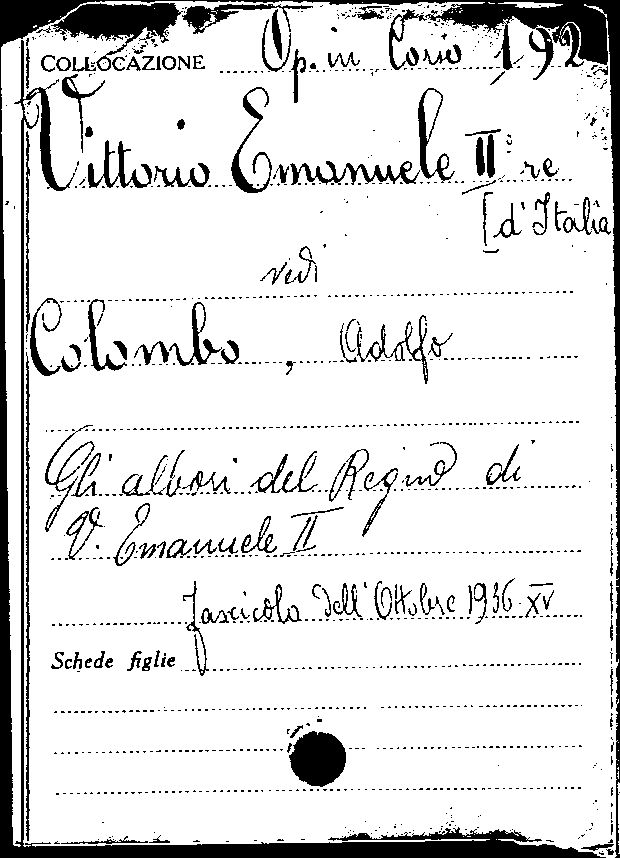 COLLOCAZIONE Op. in Corso 192
Vittorio Emanuele II° re
[d'Italia
vedi
Colombo, Adolfo
Gli albori del Regno di
V. Emanuele II
fascicolo dell'Ottobre 1936-XV
Schede figlie